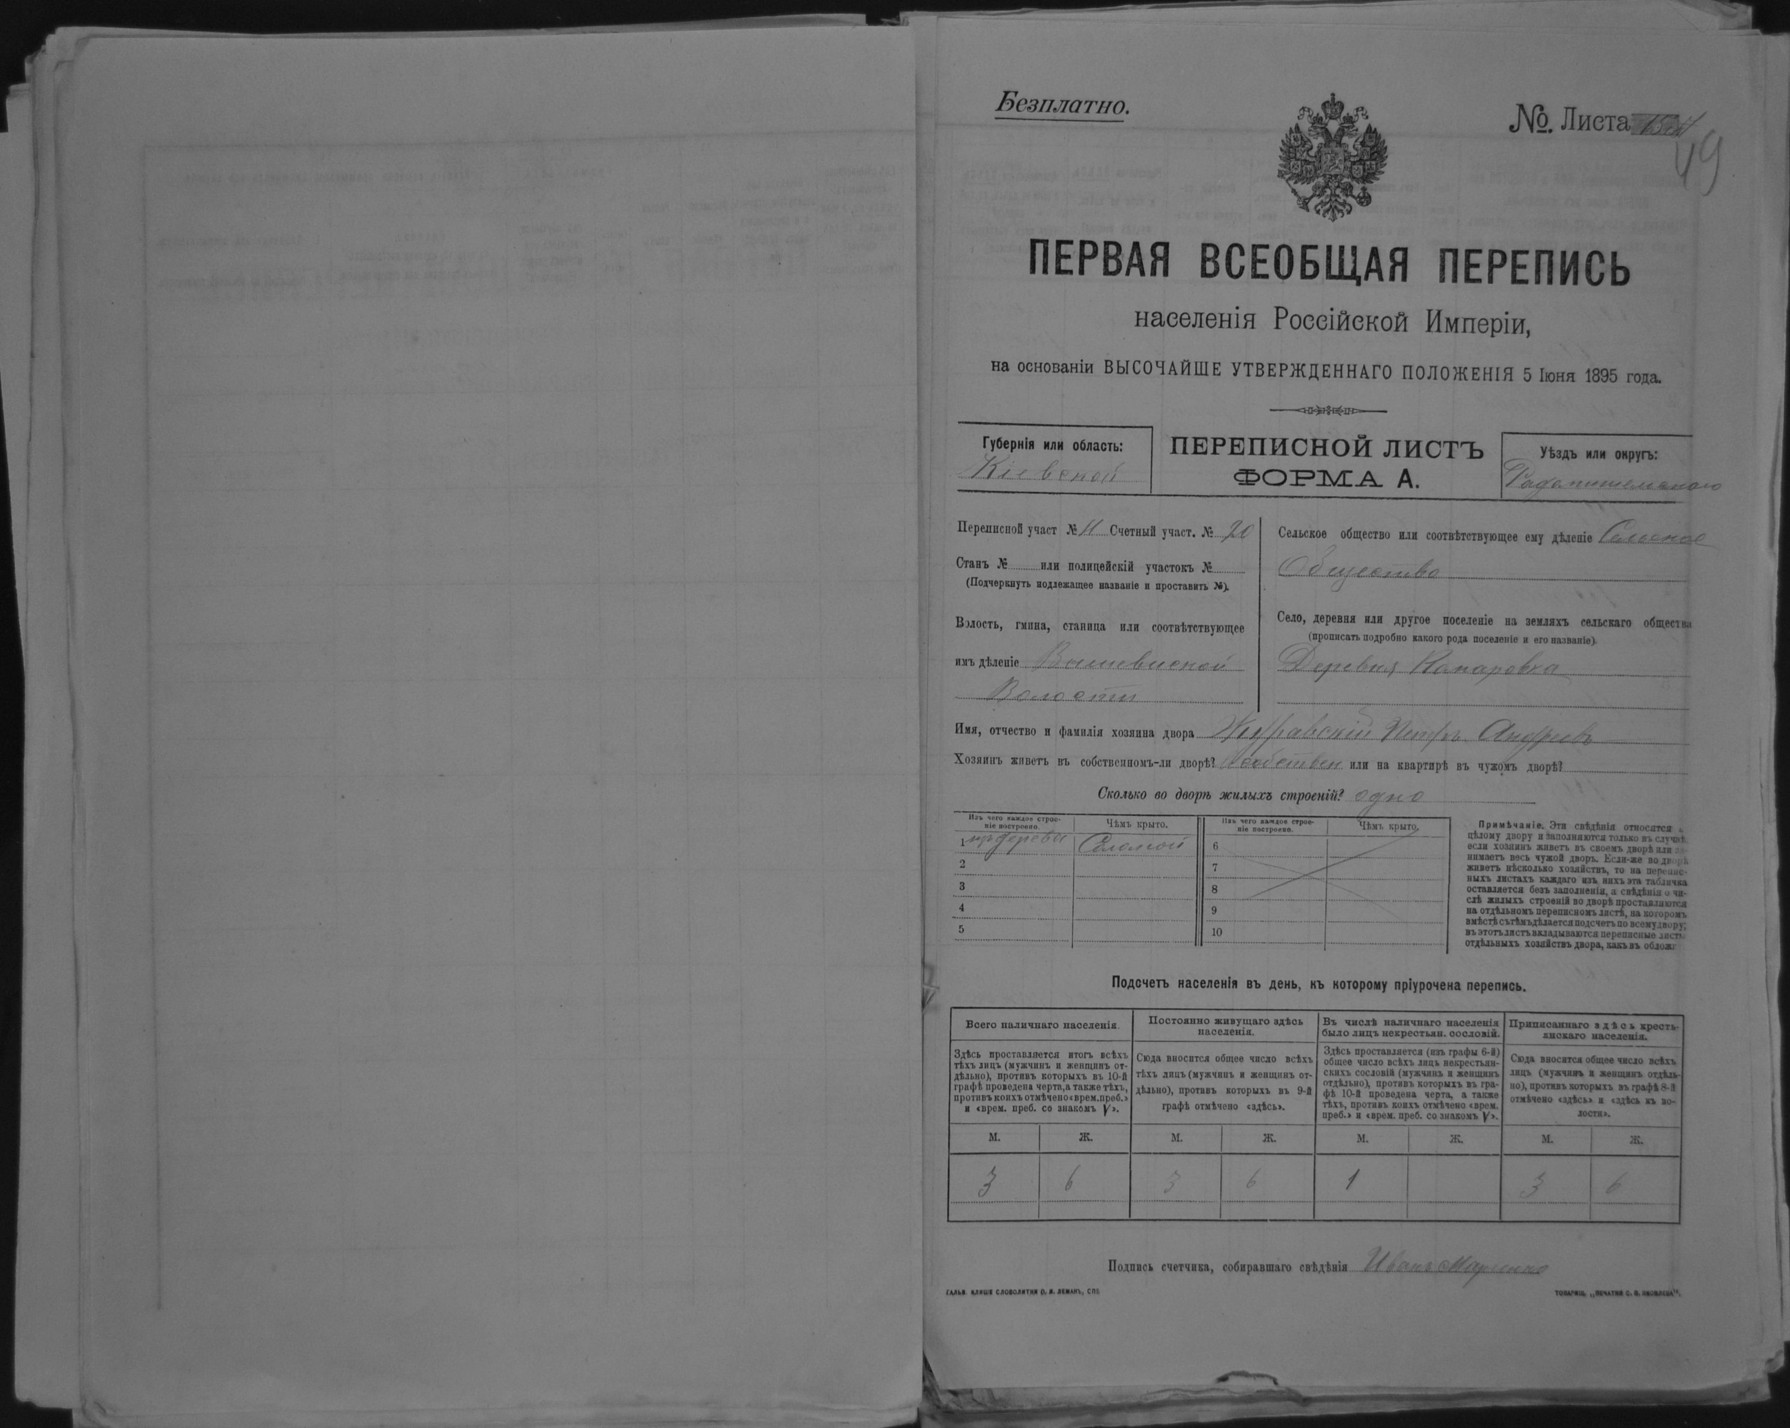 Безплатно.
№. Листа
49
ПЕРВАЯ ВСЕОБЩАЯ ПЕРЕПИСЬ
населенія Россійской Имперіи,
на основаніи ВЫСОЧАЙШЕ УТВЕРЖДЕННАГО ПОЛОЖЕНІЯ 5 Іюня 1895 года.
Губернія или область:
Кіевской
ПЕРЕПИСНОЙ ЛИСТЪ
ФОРМА А.
Уѣздъ или округъ:
Радомысльскаго
Переписной участ № 11 Счетный участ. № 20
Станъ № или полицейскій участокъ №
(Подчеркнуть подлежащее названіе и проставить №).
Волость, гмина, станица или соотвѣтствующее
имъ дѣленіе Вышевиской
Волости
Сельское общество или соотвѣтствующее ему дѣленіе Сельское
Общество
Село, деревня или другое поселеніе на земляхъ сельскаго общества
(прописать подробно какого рода поселеніе и его названіе).
Деревня
Имя, отчество и фамилія хозяина двора Журавскій Петръ Андреевъ
Хозяинъ живетъ въ собственномъ-ли дворѣ? собствен или на квартирѣ въ чужомъ дворѣ?
Сколько во дворѣ жилыхъ строеній? одно
Изъ чего каждое строе-
ніе построено.
Чѣмъ крыто.
1 изъ дерева Соломой
2
3
4
5
Изъ чего каждое строе-
ніе построено.
Чѣмъ крыто.
6
7
8
9
10
Примѣчаніе. Эти свѣдѣнія относятся
цѣлому двору и заполняются только въ случаѣ,
если хозяинъ живетъ въ своемъ дворѣ или за-
нимаетъ весь чужой дворъ. Если-же во дворѣ
живетъ нѣсколько хозяйствъ, то на перепис-
ныхъ листахъ каждаго изъ нихъ эта табличка
оставляется безъ заполненія, а свѣдѣнія о чи-
слѣ жилыхъ строеній во дворѣ проставляются
на отдѣльномъ переписномъ листѣ, на которомъ
вмѣстѣ съ тѣмъ дѣлается подсчетъ по всему двору;
въ этотъ листъ вкладываются переписные листы
отдѣльныхъ хозяйствъ двора, какъ въ облож
Подсчетъ населенія въ день, къ которому пріурочена перепись.
Всего наличнаго населенія.
Здѣсь проставляется итогъ всѣхъ
тѣхъ лицъ (мужчинъ и женщинъ от-
дѣльно), противъ которыхъ въ 10-й
графѣ проведена черта, а также тѣхъ,
противъ коихъ отмѣчено «врем. преб.»
и «врем. преб. со знакомъ V».
Постоянно живущаго здѣсь
населенія.
Сюда вносится общее число всѣхъ
тѣхъ лицъ (мужчинъ и женщинъ от-
дѣльно), противъ которыхъ въ 9-й
графѣ отмѣчено «здѣсь».
Въ числѣ наличнаго населенія
было лицъ некрестьян. сословій.
Здѣсь проставляется (изъ графы 6-й)
общее число всѣхъ лицъ некрестьян-
скихъ сословій (мужчинъ и женщинъ
отдѣльно), противъ которыхъ въ гра-
фѣ 10-й проведена черта, а также
тѣхъ, противъ коихъ отмѣчено «врем.
преб.» и «врем. преб. со знакомъ V».
Приписаннаго здѣсь кресть-
янскаго населенія.
Сюда вносится общее число всѣхъ
лицъ (мужчинъ и женщинъ отдѣль-
но), противъ которыхъ въ графѣ 8-й
отмѣчено «здѣсь» и «здѣсь къ во-
лости».
М. Ж. М. Ж. М. Ж. М. Ж.
3 6 3 6 1 3 6
Подпись счетчика, собиравшаго свѣдѣнія Иванъ
ГАЛЬВ. КЛИШЕ СЛОВОЛИТНИ О. И. ЛЕМАНЪ, СПБ.
ТОВАРИЩ. „ПЕЧАТНЯ С. П. ЯКОВЛЕВА".